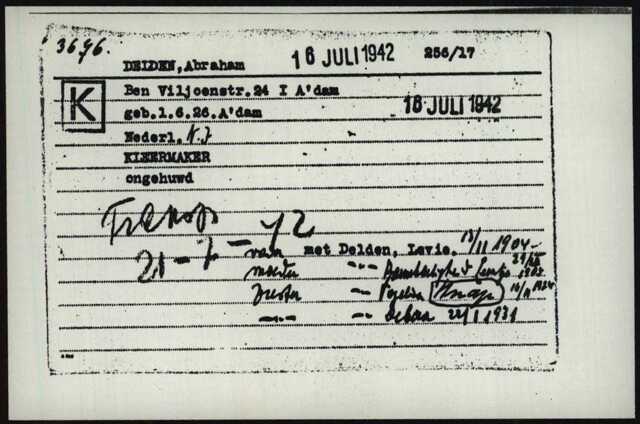 3696.
DELDEN, Abraham 16 JULI 1942 256/17
K
Ben Viljoenstr. 24 I A'dam
geb. 1.6.26. A'dam 18 JULI 1942
Nederl. N.I
KLEERMAKER
ongehuwd
Transp
21-7-42
vader met Delden, Levie. 13/11 1904
moeder -"-
Zuster -"-
-"- -"- Debora 22/1 1931